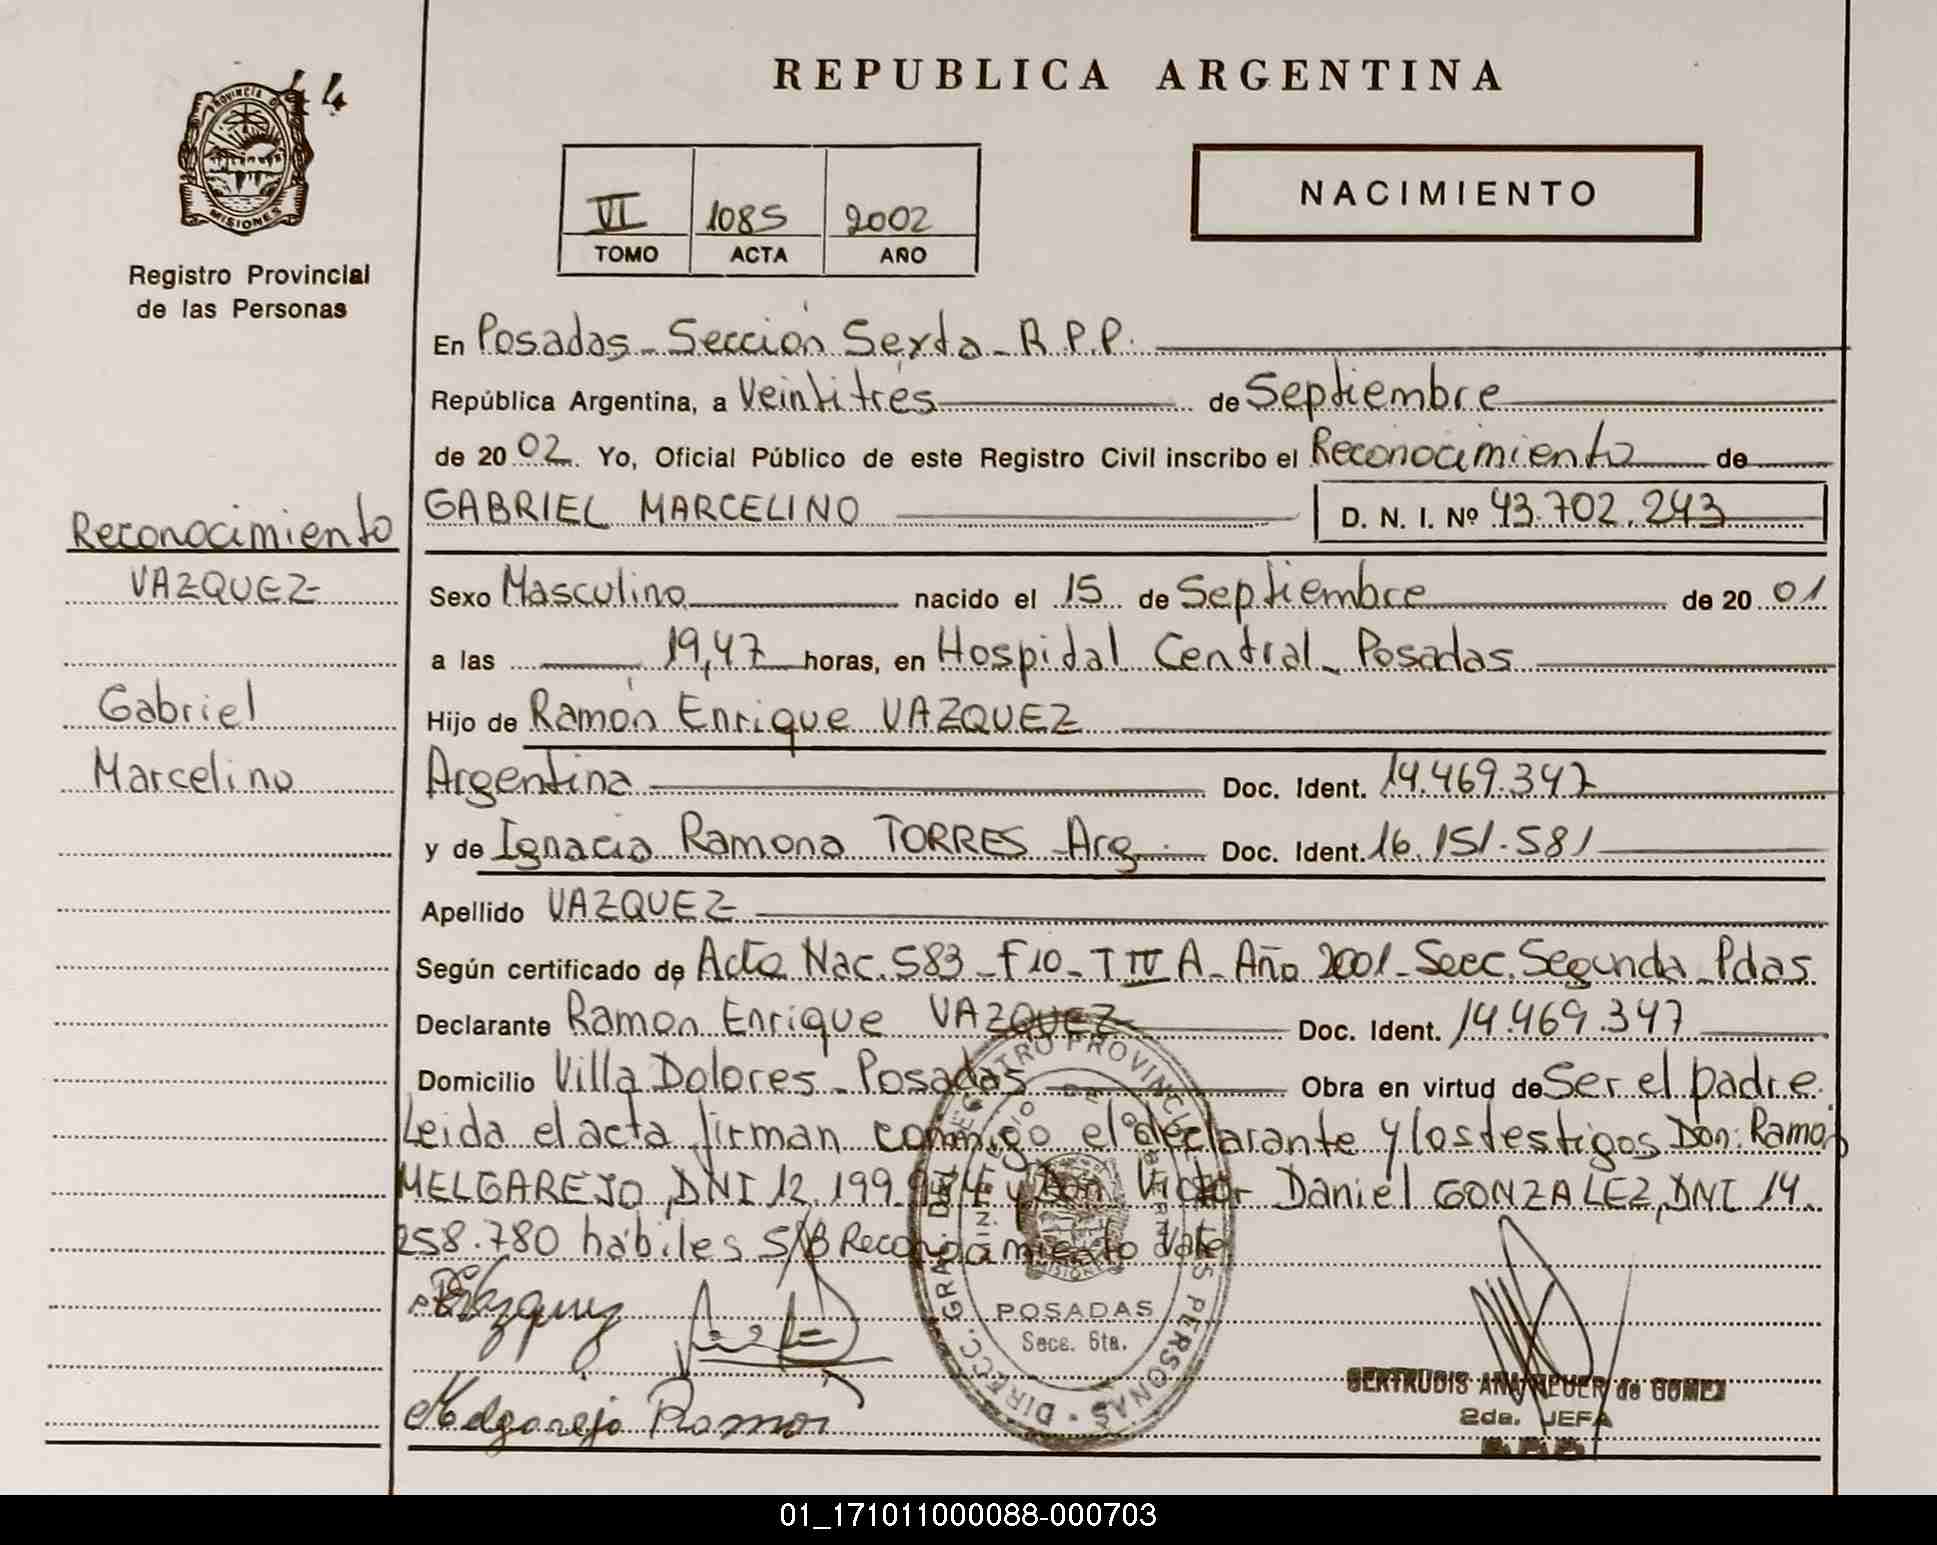 44
PROVINCIA DE
MISIONES
Registro Provincial
de las Personas
REPUBLICA ARGENTINA
VI 1085 2002
TOMO ACTA AÑO
NACIMIENTO
En Posadas - Sección Sexta - R.P.P.
República Argentina, a Veintitrés de Septiembre
de 20 02. Yo, Oficial Público de este Registro Civil inscribo el Reconocimiento de
GABRIEL MARCELINO D. N. I. Nº 43.702.243
Reconocimiento
VAZQUEZ
Gabriel
Marcelino
Sexo Masculino nacido el 15 de Septiembre de 20 01
a las 19,47 horas, en Hospital Central - Posadas
Hijo de Ramón Enrique VAZQUEZ
Argentina Doc. Ident. 14.469.347
y de Ignacia Ramona TORRES Arg. Doc. Ident. 16.151.581
Apellido VAZQUEZ
Según certificado de Acta Nac. 583 - F 10 - T IV A - Año 2001 - Secc. Segunda - Pdas
Declarante Ramon Enrique VAZQUEZ Doc. Ident. 14.469.347
Domicilio Villa Dolores - Posadas Obra en virtud de Ser el padre.
Leida el acta firman conmigo el declarante y los testigos Don: Ramon
MELGAREJO, DNI 12.199. y Don Victor Daniel GONZALEZ, DNI 14.
258.780 hábiles S/B Reconocimiento Vale
Vazquez
Melgarejo Ramon
DIRECC. GRAL. DEL REGISTRO PROVINCIAL DE LAS PERSONAS
MINISTERIO DE GOBIERNO
MISIONES
POSADAS
Secc. 6ta.
GERTRUDIS ANA NEUER de GOMEZ
2da. JEFA
01_171011000088-000703